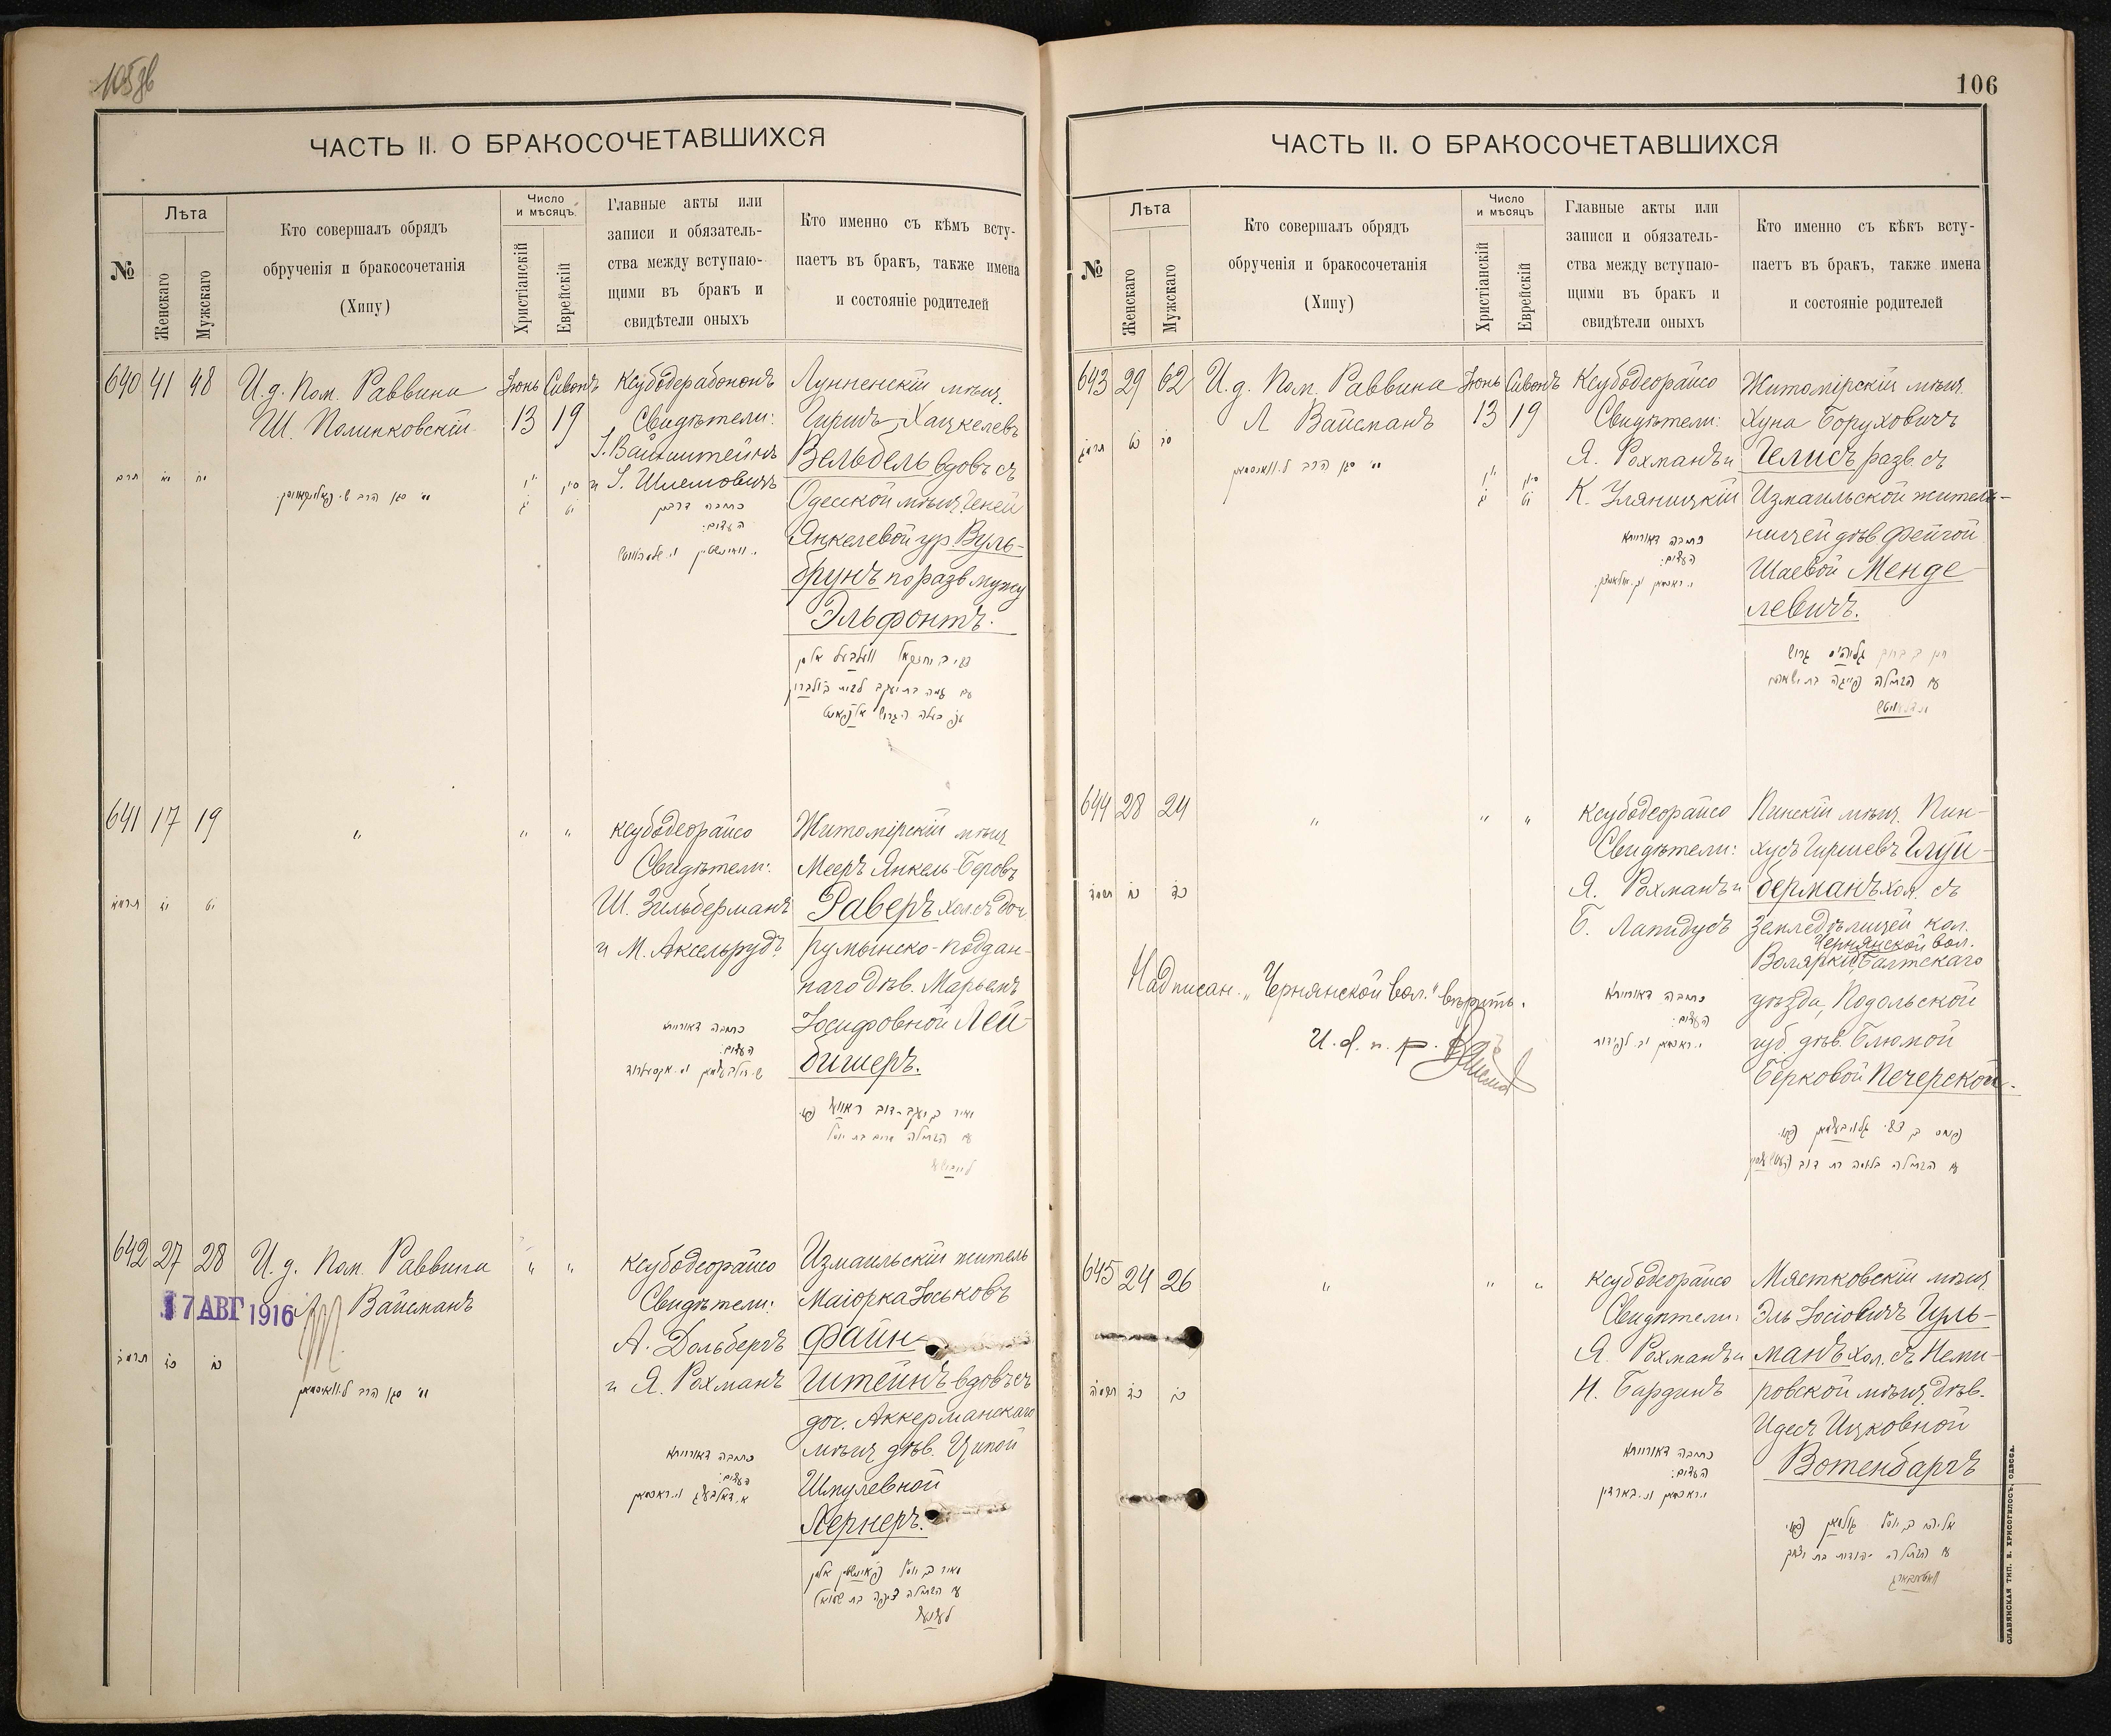 105 об
ЧАСТЬ II. О БРАКОСОЧЕТАВШИХСЯ
№
Лѣта
Женскаго
Мужскаго
Кто совершалъ обрядъ
обрученія и бракосочетанія
(Хипу)
Число
и мѣсяцъ.
Христіанскій
Еврейскій
Главные акты или
записи и обязатель-
ства между вступаю-
щими въ бракъ и
свидѣтели оныхъ
Кто именно съ кѣмъ всту-
паетъ въ бракъ, также имена
и состояніе родителей
640 41 48
И. д. Пом. Раввина
Ш. Полинковскій
Іюнь Сивонъ
13 19
Ксубодерабононъ
Свидѣтели:
І. Вайнштейнъ
и І. Шлемовичъ
כתובה דרבנן
העדים:
Лунненскій мѣщ.
Гиршъ Хацкелевъ
Вельбель вдовъ съ
Одесской мѣщ. Геней
Янкелевой ур. Вуль-
брунъ по разв. мужу
Эльфонтъ.
641 17 19
" " "
Ксубодеорайсо
Свидѣтели:
Ш. Зильберманъ
и М. Аксельрудъ
כתובה דאורייתא
העדים:
Житомірскій мѣщ.
Мееръ Янкель-Беровъ
Раверъ хол. съ доч.
румынско-поддан-
наго дѣв. Марьемъ
Іосифовной Лей-
бишеръ.
642 27 28
И. д. Пом. Раввина
Л. Вайсманъ
17 АВГ 1916
" "
Ксубодеорайсо
Свидѣтели:
А. Дольбергъ
и Я. Рохманъ
כתובה דאורייתא
העדים:
Измаильскій житель
Маіорка Іоськовъ
Файн-
штейнъ вдовъ съ
доч. Аккерманскаго
мѣщ. дѣв. Ципой
Шмулевной
Лернеръ.
106
ЧАСТЬ II. О БРАКОСОЧЕТАВШИХСЯ
№
Лѣта
Женскаго
Мужскаго
Кто совершалъ обрядъ
обрученія и бракосочетанія
(Хипу)
Число
и мѣсяцъ
Христіанскій
Еврейскій
Главные акты или
записи и обязатель-
ства между вступаю-
щими въ бракъ и
свидѣтели оныхъ
Кто именно съ кѣкъ всту-
паетъ въ бракъ, также имена
и состояніе родителей
643 29 62
И. д. Пом. Раввина
Л Вайсманъ
Іюнь Сивонъ
13 19
Ксубодеорайсо
Свидѣтели:
Я. Рохманъ и
К. Уляницкій
כתובה דאורייתא
העדים:
Житомірскій мѣщ.
Хуна Боруховичъ
Гелисъ разв. съ
Измаильской житель-
ницей дѣв. Фейгой
Шаевой Менде
левичъ.
644 28 24
" " "
Ксубодеорайсо
Свидѣтели:
Я. Рохманъ и
Б. Лапидусъ
כתובה דאורייתא
העדים:
Пинскій мѣщ. Пин-
хусъ Гиршевъ Глуй-
берманъ хол. съ
Земледѣлицей кол.
Чернянской вол.
Волярки, Балтскаго
уѣзда, Подольской
губ. дѣв. Блюмой
Берковой Печерской.
Надписан. „Чернянской вол." вѣрить.
И. д. п. р.
645 24 26
" " "
Ксубодеорайсо
Свидѣтели:
Я. Рохманъ и
Н. Бардинъ
כתובה דאורייתא
העדים:
Мястковскій мѣщ.
Эль Іосіовичъ Гуль-
манъ хол. съ Неми-
ровской мѣщ. дѣв.
Идес Ицковной
Вотенбаргъ
СЛАВЯНСКАЯ ТИП. Е. ХРИСОГЕЛОСЪ, ОДЕССА.